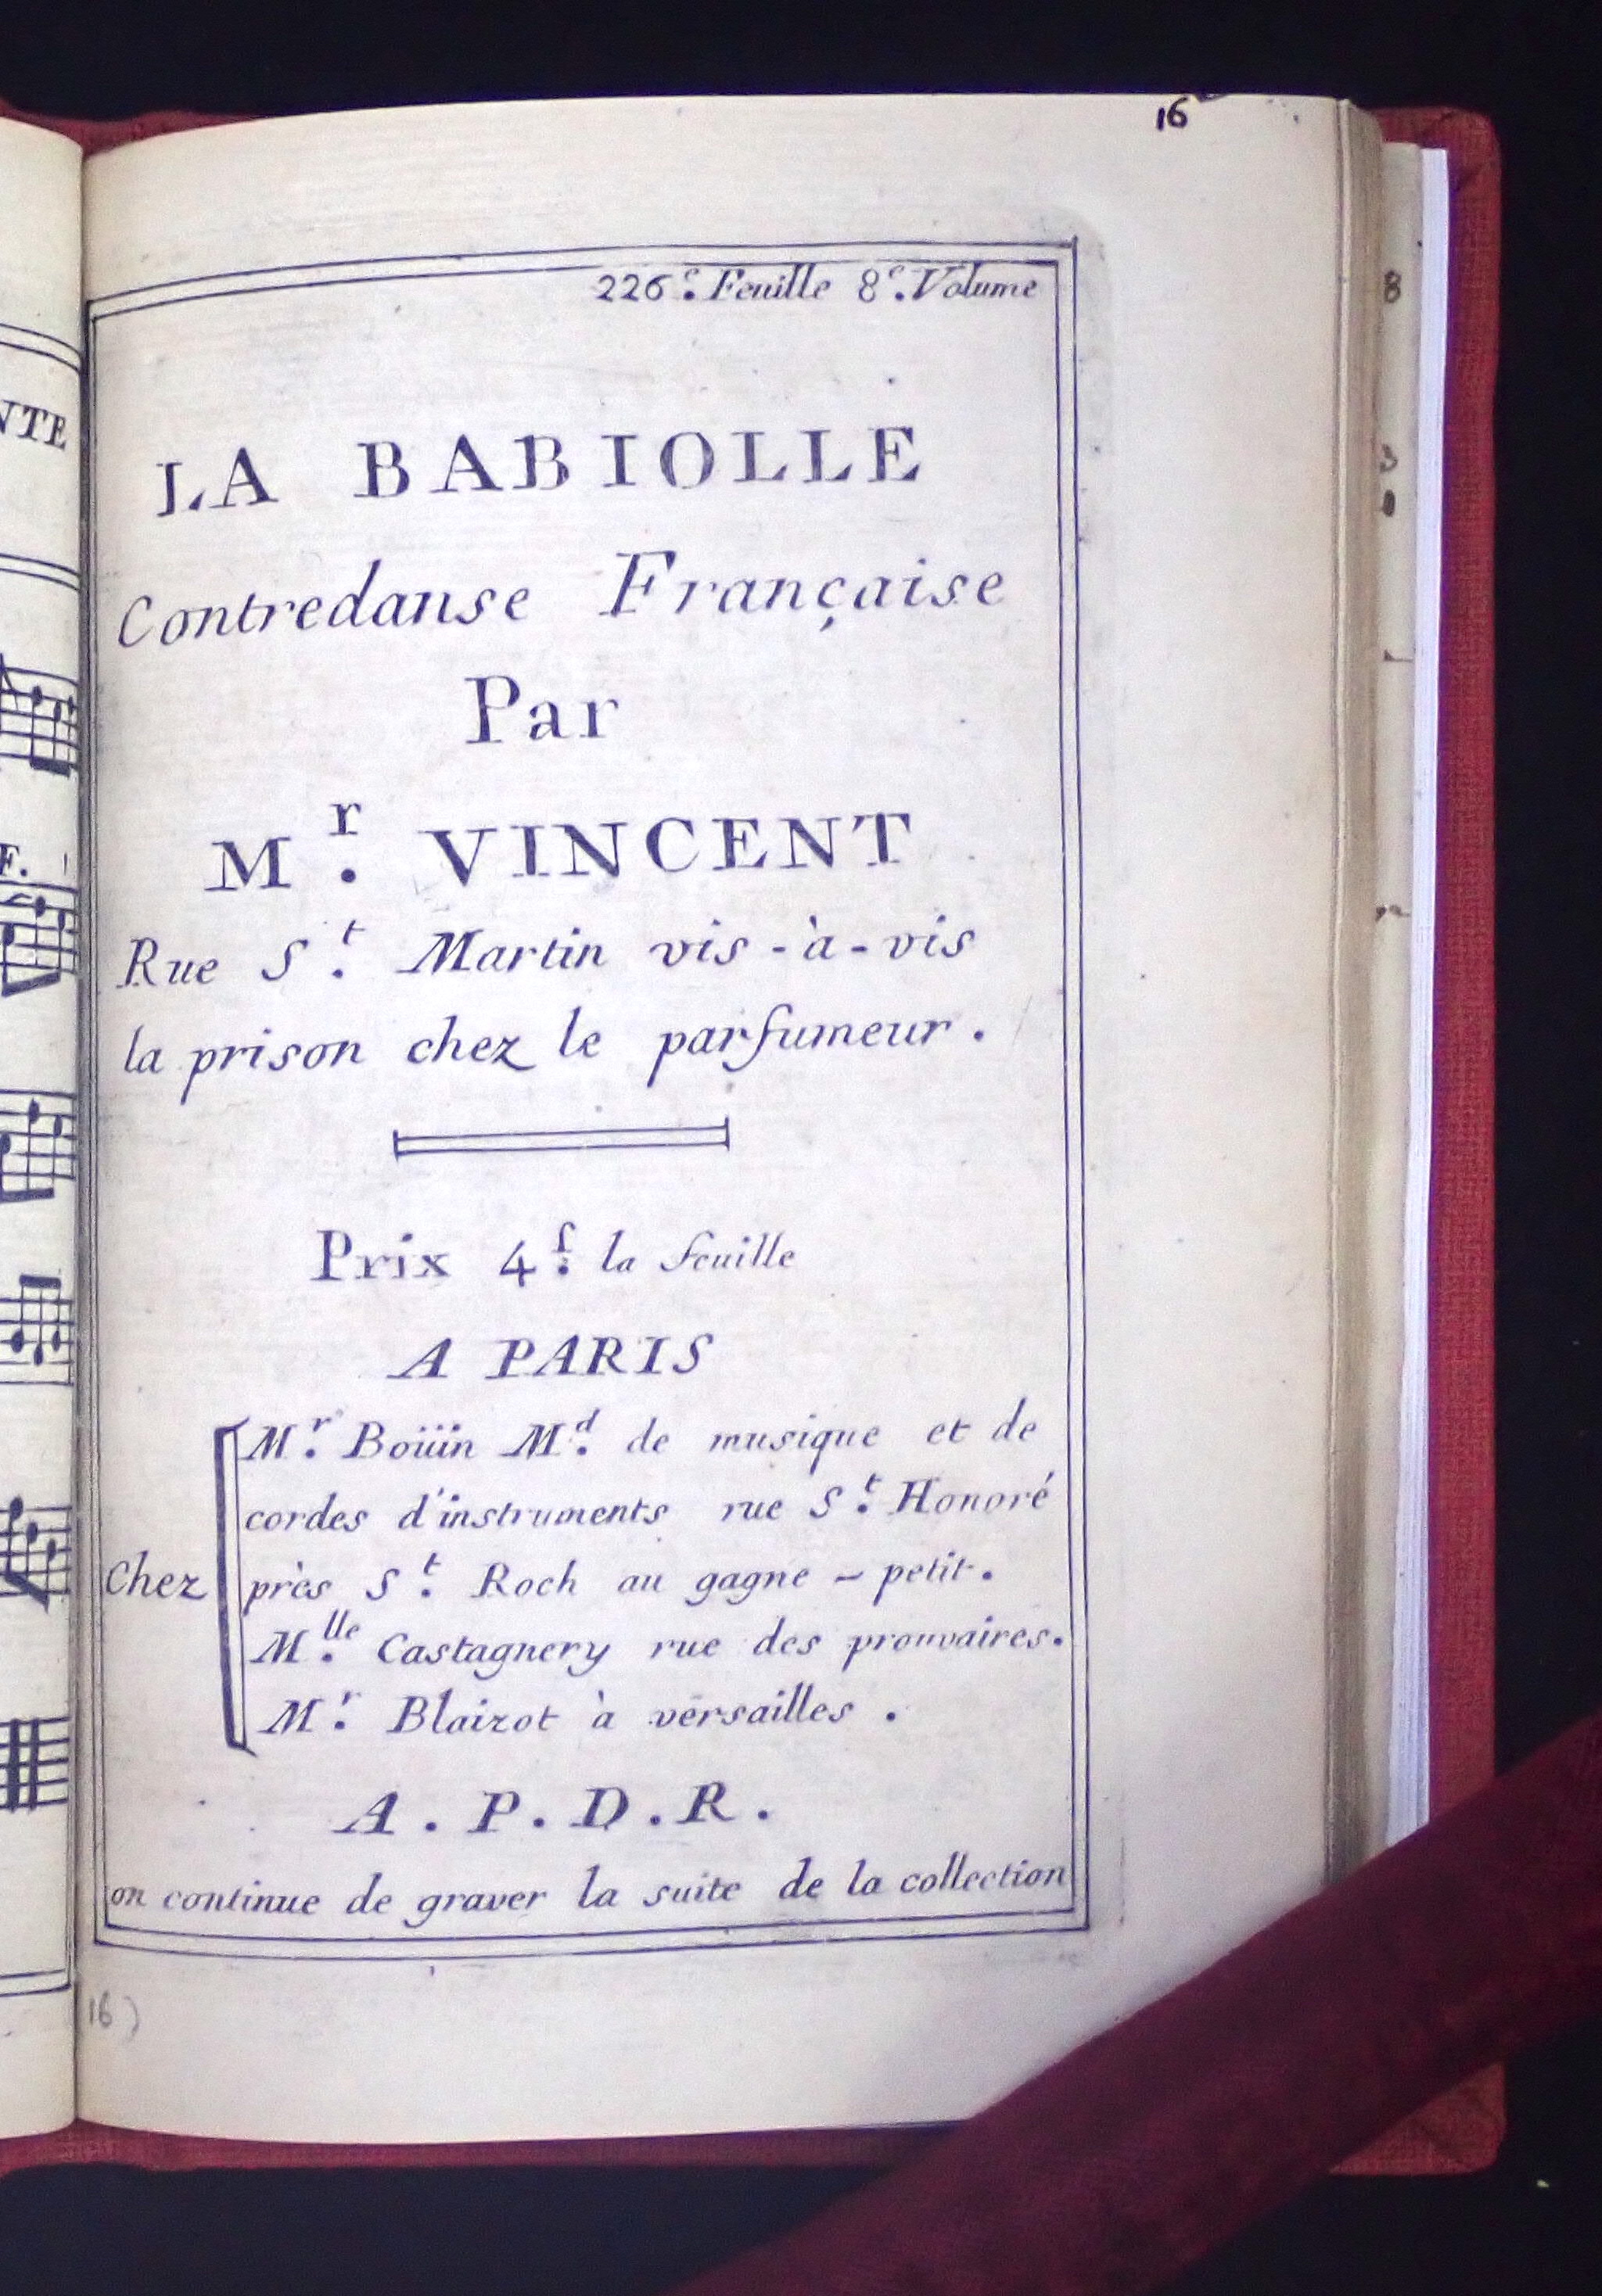 16
226.e Feuille 8.e Volume
LA BABIOLLE
Contredanse Française
Par
M.r VINCENT
Rue S.t Martin vis-à-vis
la prison chez le parfumeur.
Prix 4.s la feuille
A PARIS
Chez
M.r Boüin M.d de musique et de
cordes d'instruments rue S.t Honoré
près S.t Roch au gagne-petit.
M.lle Castagnery rue des prouvaires.
M.r Blaizot à versailles.
A.P.D.R.
on continue de graver la suite de la collection
16)
NTE
F.
8
3